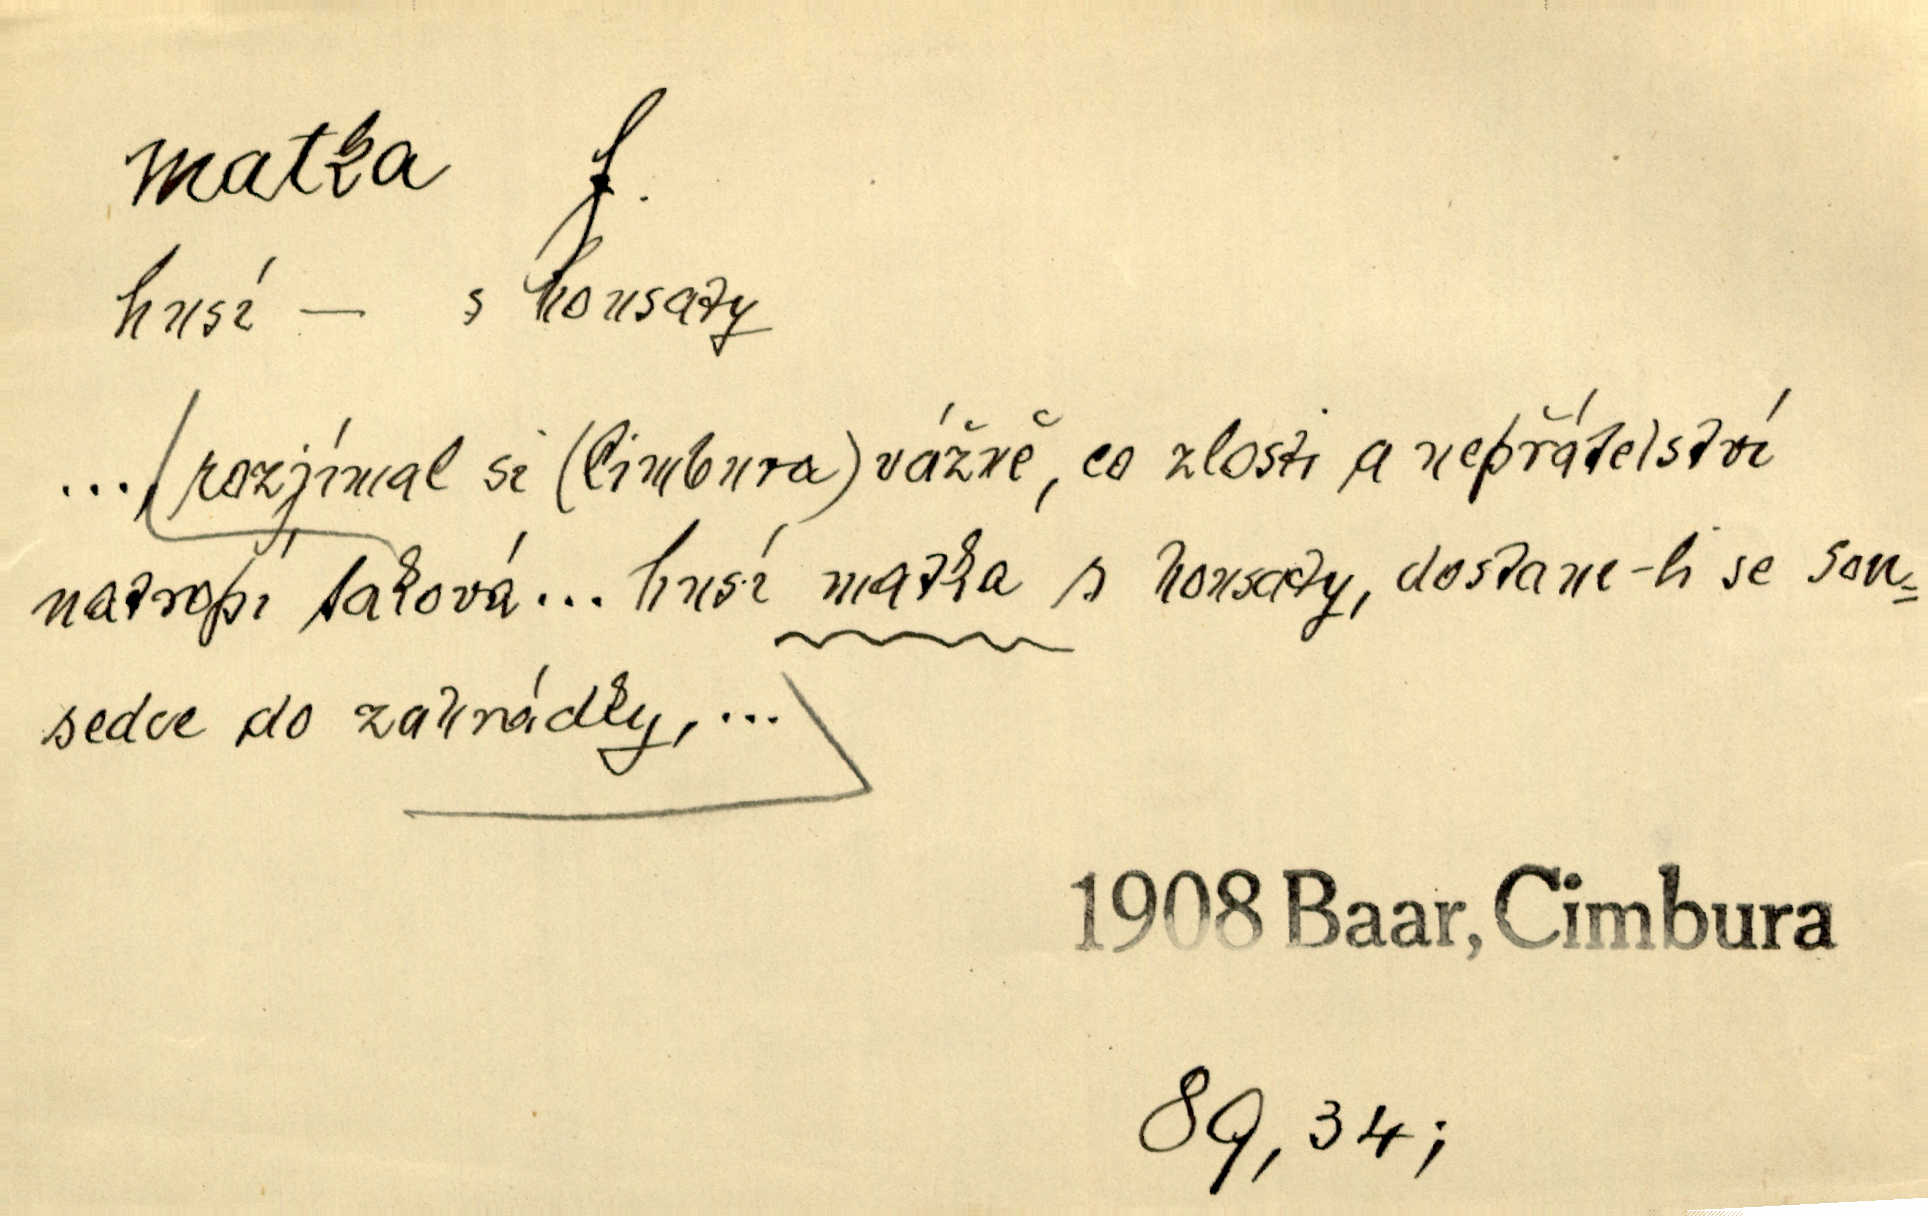 matka f.
husí — s housaty
... rozjímal si (Cimbura) vážně, co zlosti a nepřátelství
natropí taková... husí matka s housaty, dostane-li se sou=
sedce do zahrádky, ...
1908 Baar, Cimbura
89, 34;